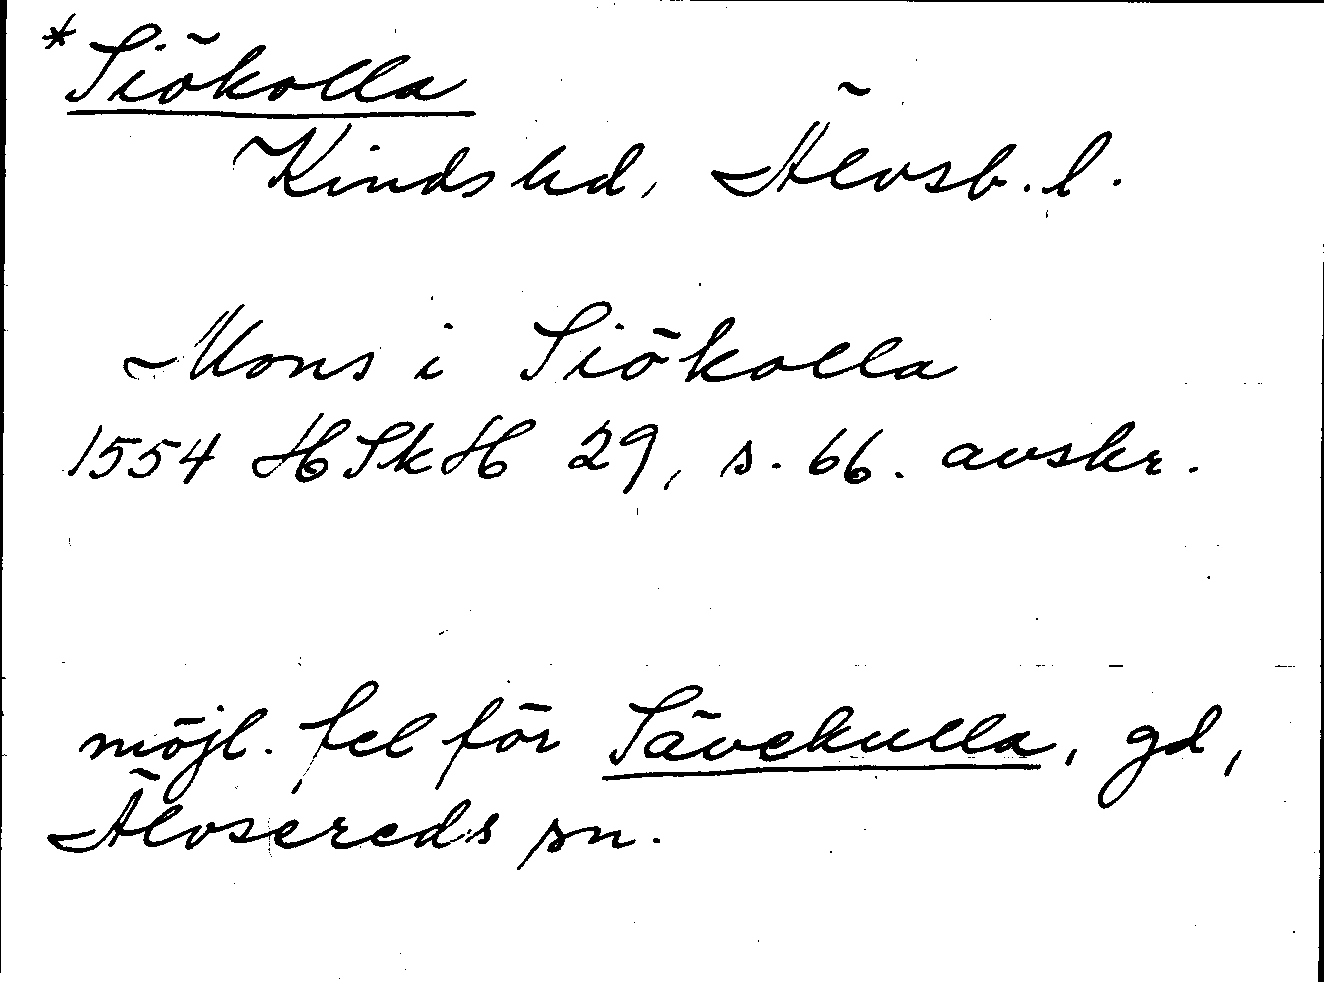 *Siökolla
Kinds hd, Älvsb. l.
Mons i Siökolla
1554 HSkH 29, s. 66. avskr.
möjl. fel för Sävekulla, gd,
Älvsereds sn.